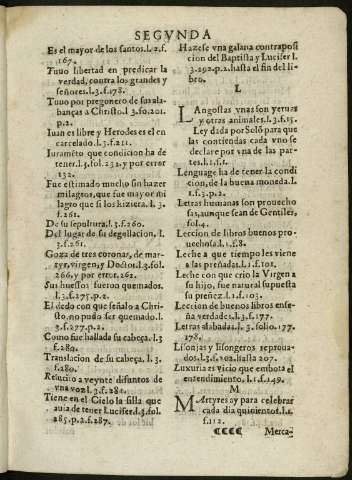 SEGVNDA
Es el mayor de los santos.l.2.f.
167.
Tuuo libertad en predicar la
verdad, contra los grandes y
señores.l.3.f.178.
Tuuo por pregonero de sus ala-
banças a Christo.l.3.fo.201.
p.2.
Iuan es libre y Herodes es el en
carcelado.l.3.f.211.
Iuraméto que condicion ha de
tener.l.3.fol.231.y por error
132.
Fue estimado mucho sin hazer
milagros, que fue mayor mi
lagro que si los hiziera.l.3.
f.261.
De su sepultura.l.3.f.260.
Del lugar de su degollacion.l.
3.f.261.
Goza de tres coronas, de mar-
tyr, virgen, y Doctor.l.3.fol.
266.y por error.262.
Sus huessos fueron quemados.
l.3.f.275.p.2.
El dedo con que señalo a Chri-
sto.no pudo ser quemado.l.
3.f.277.p.2.
Como fue hallada su cabeça.l.3
f.280.
Translacion de su cabeça.l.3.
f.280.
Resucito a veynte difuntos de
vna voz.l.3.f.284.
Tiene en el Cielo la silla que
auia de tener Lucifer.l.3.fol.
285.p.2.f.287.
Hazese vna galana contraposi
cion del Baptista y Lucifer l.
3.292.p.2.hasta el fin del li-
bro.
L
LAgostas vnas son yeruas
y otras animales.l.3.f.15.
Ley dada por Soló para que
las contiendas cada vno se
declare por vna de las par-
tes.l.1.f.1.
Lenguage ha de tener la condi
cion, de la buena moneda.l.
1.f.3.p.2.
Letras humanas son prouecho
sas, aunque sean de Gentiles,
fol.4.
Leccion de libros buenos pro-
uechosa.l.1.f.8.
Leche a que tiempo les viene
a las preñadas.l.1.f.102.
Leche con que crio la Virgen a
su hijo, fue natural supuesta
su preñez.l.1.f.103.
Leccion de buenos libros ense-
ña verdades.l.3.f.177.
Letras alabadas.l.3.folio.177.
178.
Lisonjas y lisongeros reproua-
dos.l.3.f.202.hasta 207.
Luxuria es vicio que embota el
entendimiento.l.1.f.149.
M
MArtyres ay para celebrar
cada dia quinientos.l.1.
f.112.
CCCC Merca-